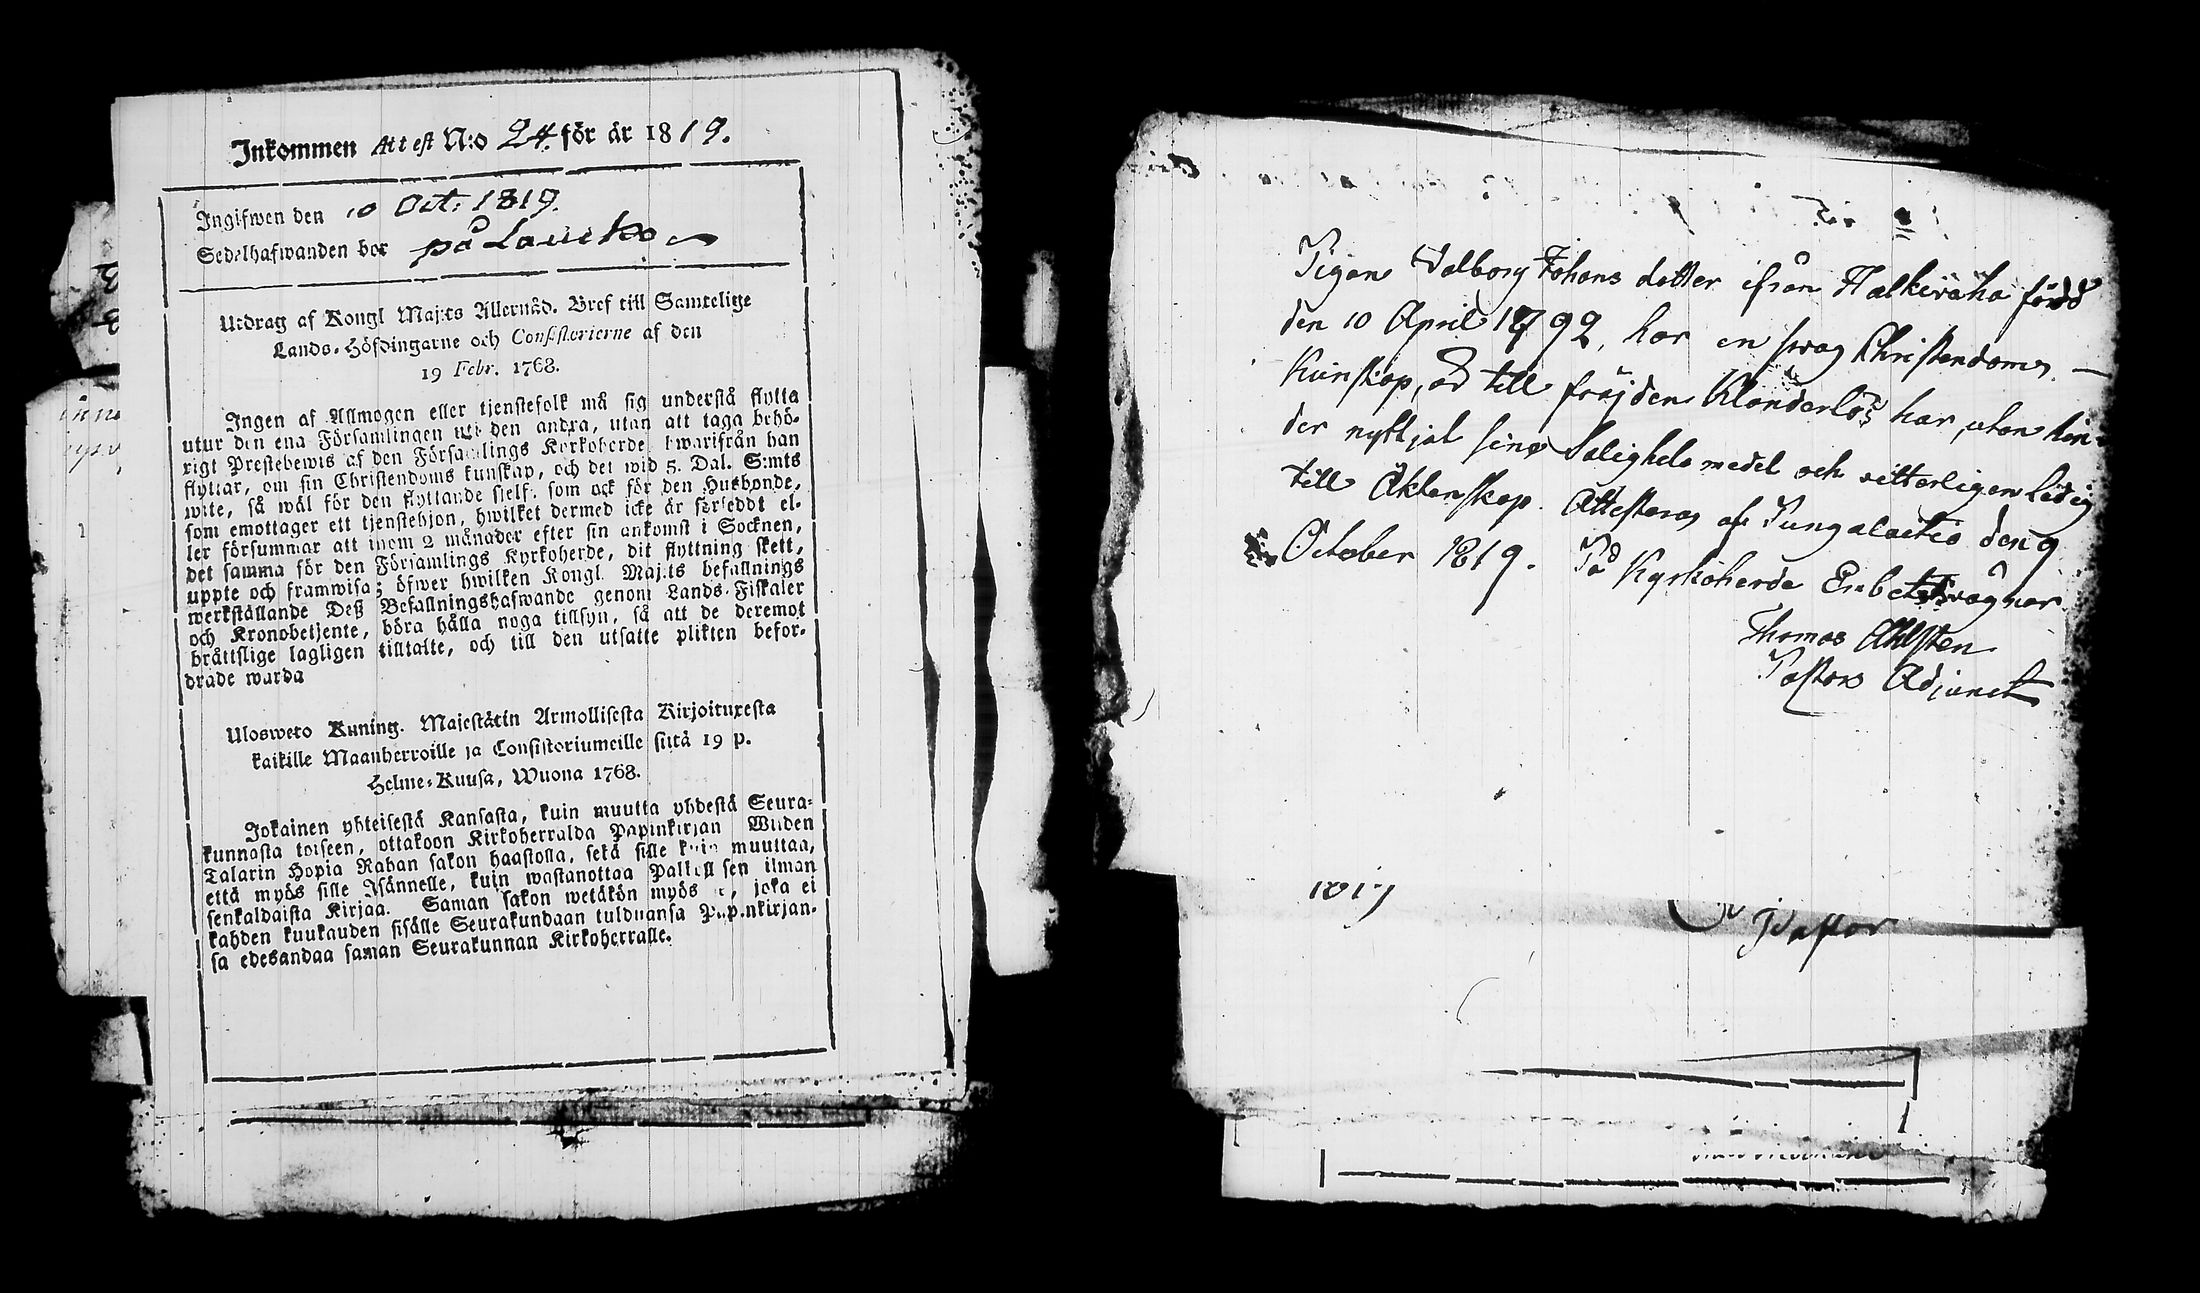 Inkommen Attest N:o 24. för år 1819.
Ingifwen den 10 Oct. 1819.
Sedelhafwanden bor på Lauko
Utdrag af Kongl Maj:ts Allernåd. Bref till Samtelige
Lands-Höfdingarne och Consistorierne af den
19 Febr. 1768.
Ingen af Allmogen eller tjenstefolk må sig understå flytta
utur den ena Församlingen uti den andra, utan att taga behö-
rigt Prestebewis af den Församlings Kyrkoherde, hwarifrån han
flyttar, om sin Christendoms kunskap, och det wid 5. Dal. S:mts
wite, så wäl för den flyttande sielf, som ock för den Husbonde,
som emottager ett tjenstehjon, hwilket dermed icke är försedt el-
ler försummar att inom 2 månader efter sin ankomst i Socknen,
det samma för den Församlings Kyrkoherde, dit flyttning skett,
uppte och framwisa; öfwer hwilken Kongl. Maj:ts befallnings
werkställande Deß Befallningshafwande genom Lands-Fiskaler
och Kronobetjente, böra hålla noga tillsyn, så att de deremot
bråttslige lagligen tilltalte, och till den utsatte plikten befor-
drade warda
Ulosweto Kuning. Majestätin Armollisesta Kirjoituxesta
kaikille Maanherroille ja Consistoriumeille siitä 19 p.
Helme-Kuusa, Wuona 1768.
Jokainen yhteisestä Kansasta, kuin muutta yhdestä Seura-
kunnasta toiseen, ottakoon Kirkoherralda Papinkirjan Wiiden
Talarin Hopia Rahan sakon haastolla, sekä sille kuin muuttaa,
että myös sille Isännelle, kuin wastanottaa Palkollisen ilman
senkaldaista Kirjaa. Saman sakon wetäkön myös se, joka ei
kahden kuukauden sisälle Seurakundaan tulduansa Papinkirjan-
sa edesandaa saman Seurakunnan Kirkoherralle.
Pigan Valborg Johans dotter ifrån Halkivaha född
den 10 April 1792, har en swag Christendoms
Kunskap, är till fräjden Klanderlös, har utan hin-
der nyttjat sine Salighets medel och sitterligen ledig
till Äktenskap. Attesteras af Pungalaitio den 9
October 1819. På Kyrkoherde Embetets vägnar
Thomas Ahlsten
Pastors Adjunct
1817
Pastor